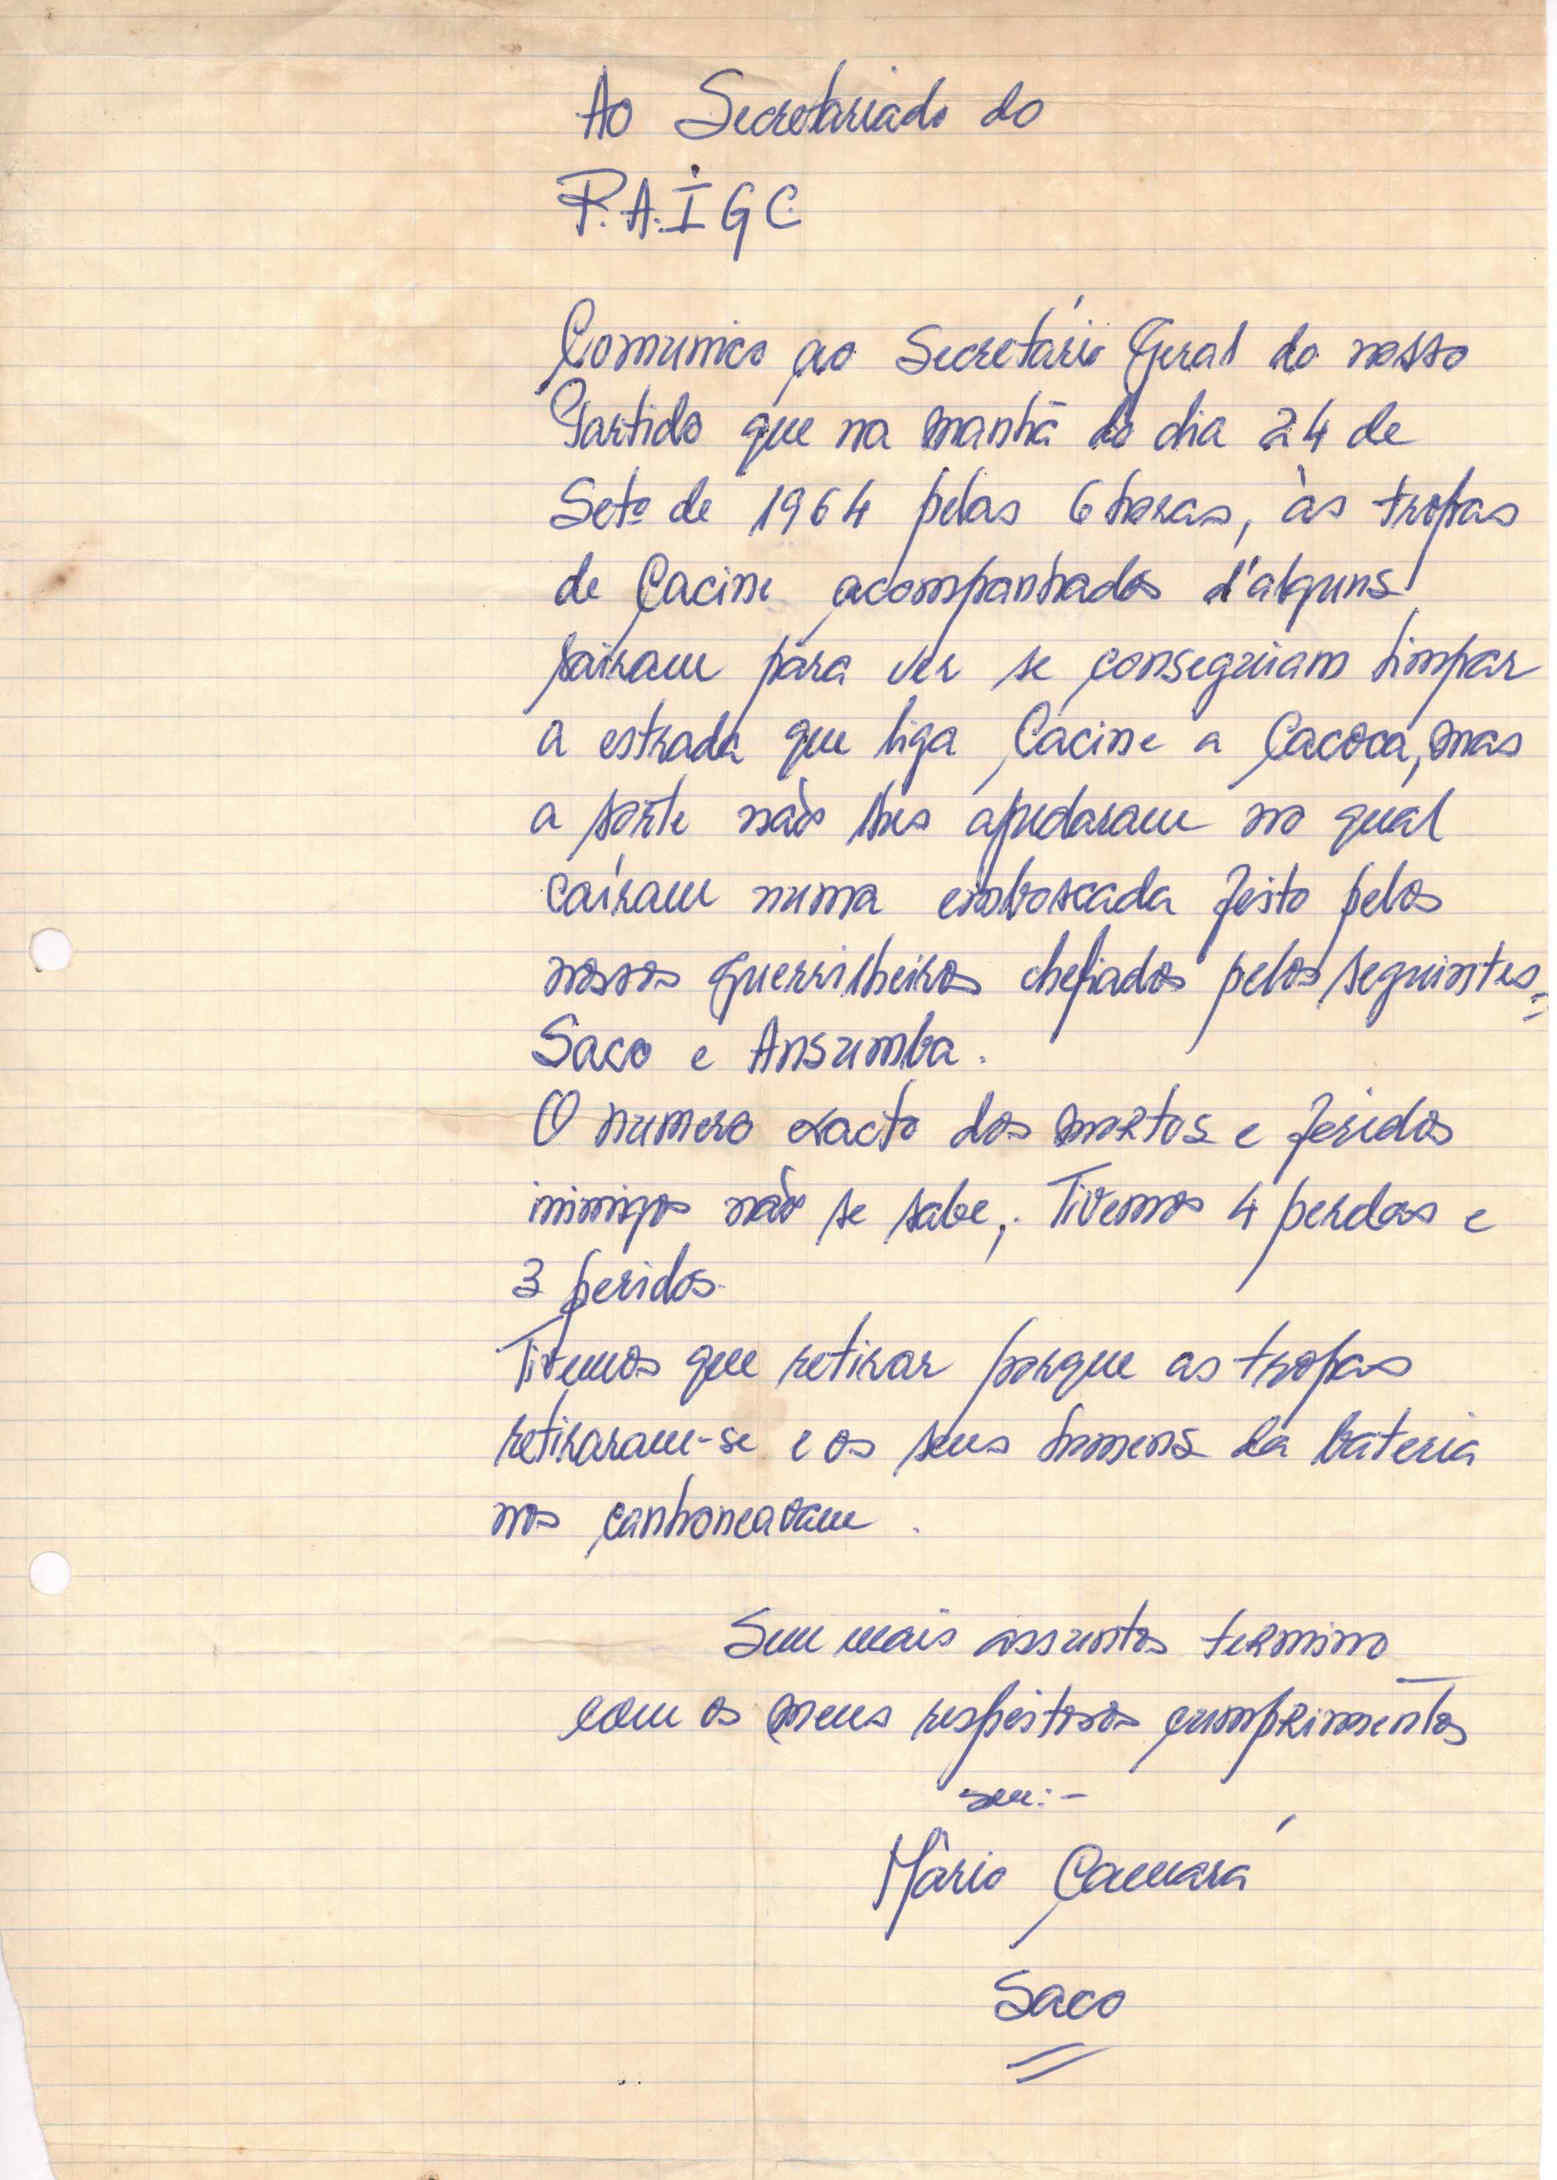 Ao Secretariado do
P.A.I G C.
Comunico ao Secretário Geral do nosso
Partido que na manhã do dia 24 de
Setº de 1964 pelas 6 horas, às tropas
de Cacine acompanhados d'alguns
sairam para ver se conseguiam limpar
a estrada que liga Cacine a Cacoca, mas
a sorte não lhes ajudaram no qual
caíram numa emboscada feito pelos
nossos guerrilheiros chefiados pelos seguintes=
Saco e Ansumba.
O numero exacto dos mortos e feridos
inimigos não se sabe,. Tivemos 4 perdas e
3 feridos.
Tivemos que retirar porque as tropas
retiraram-se e os seus homens da bateria
nos canhoneavam.
Sem mais assuntos termino
com os meus respeitosos cumprimentos
sou:-
Mário Camará
Saco